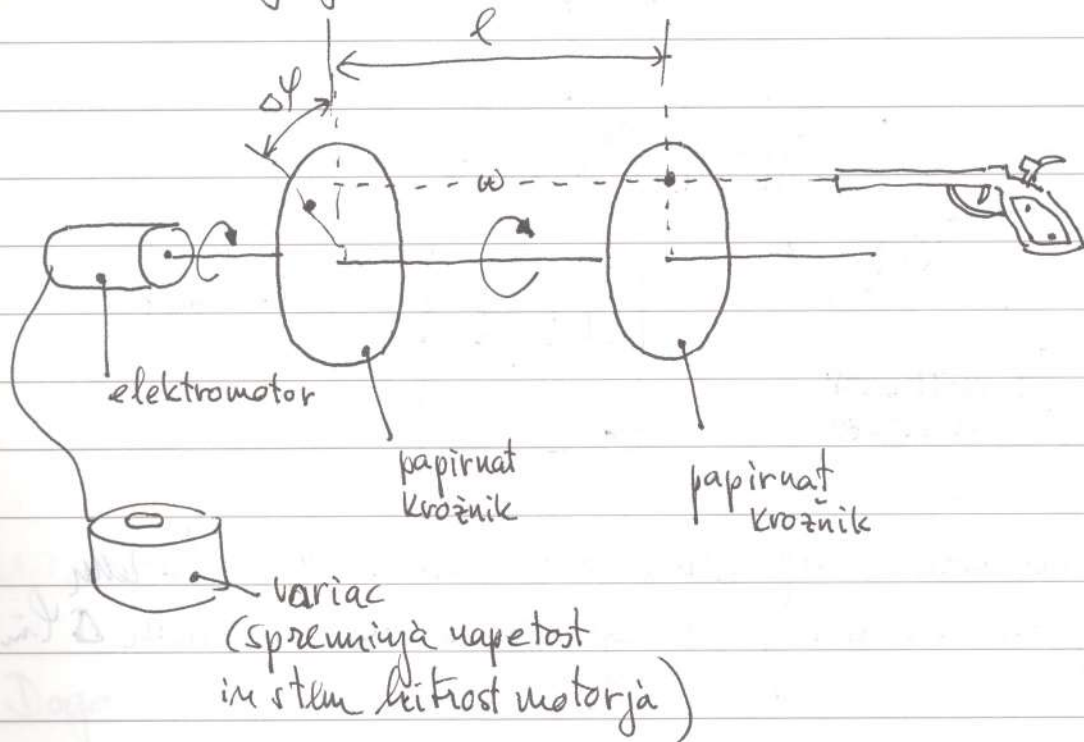 l
Δφ
ω
elektromotor
papirnat
krožnik
papirnat
krožnik
variac
(spreminja napetost
in s tem hitrost motorja)